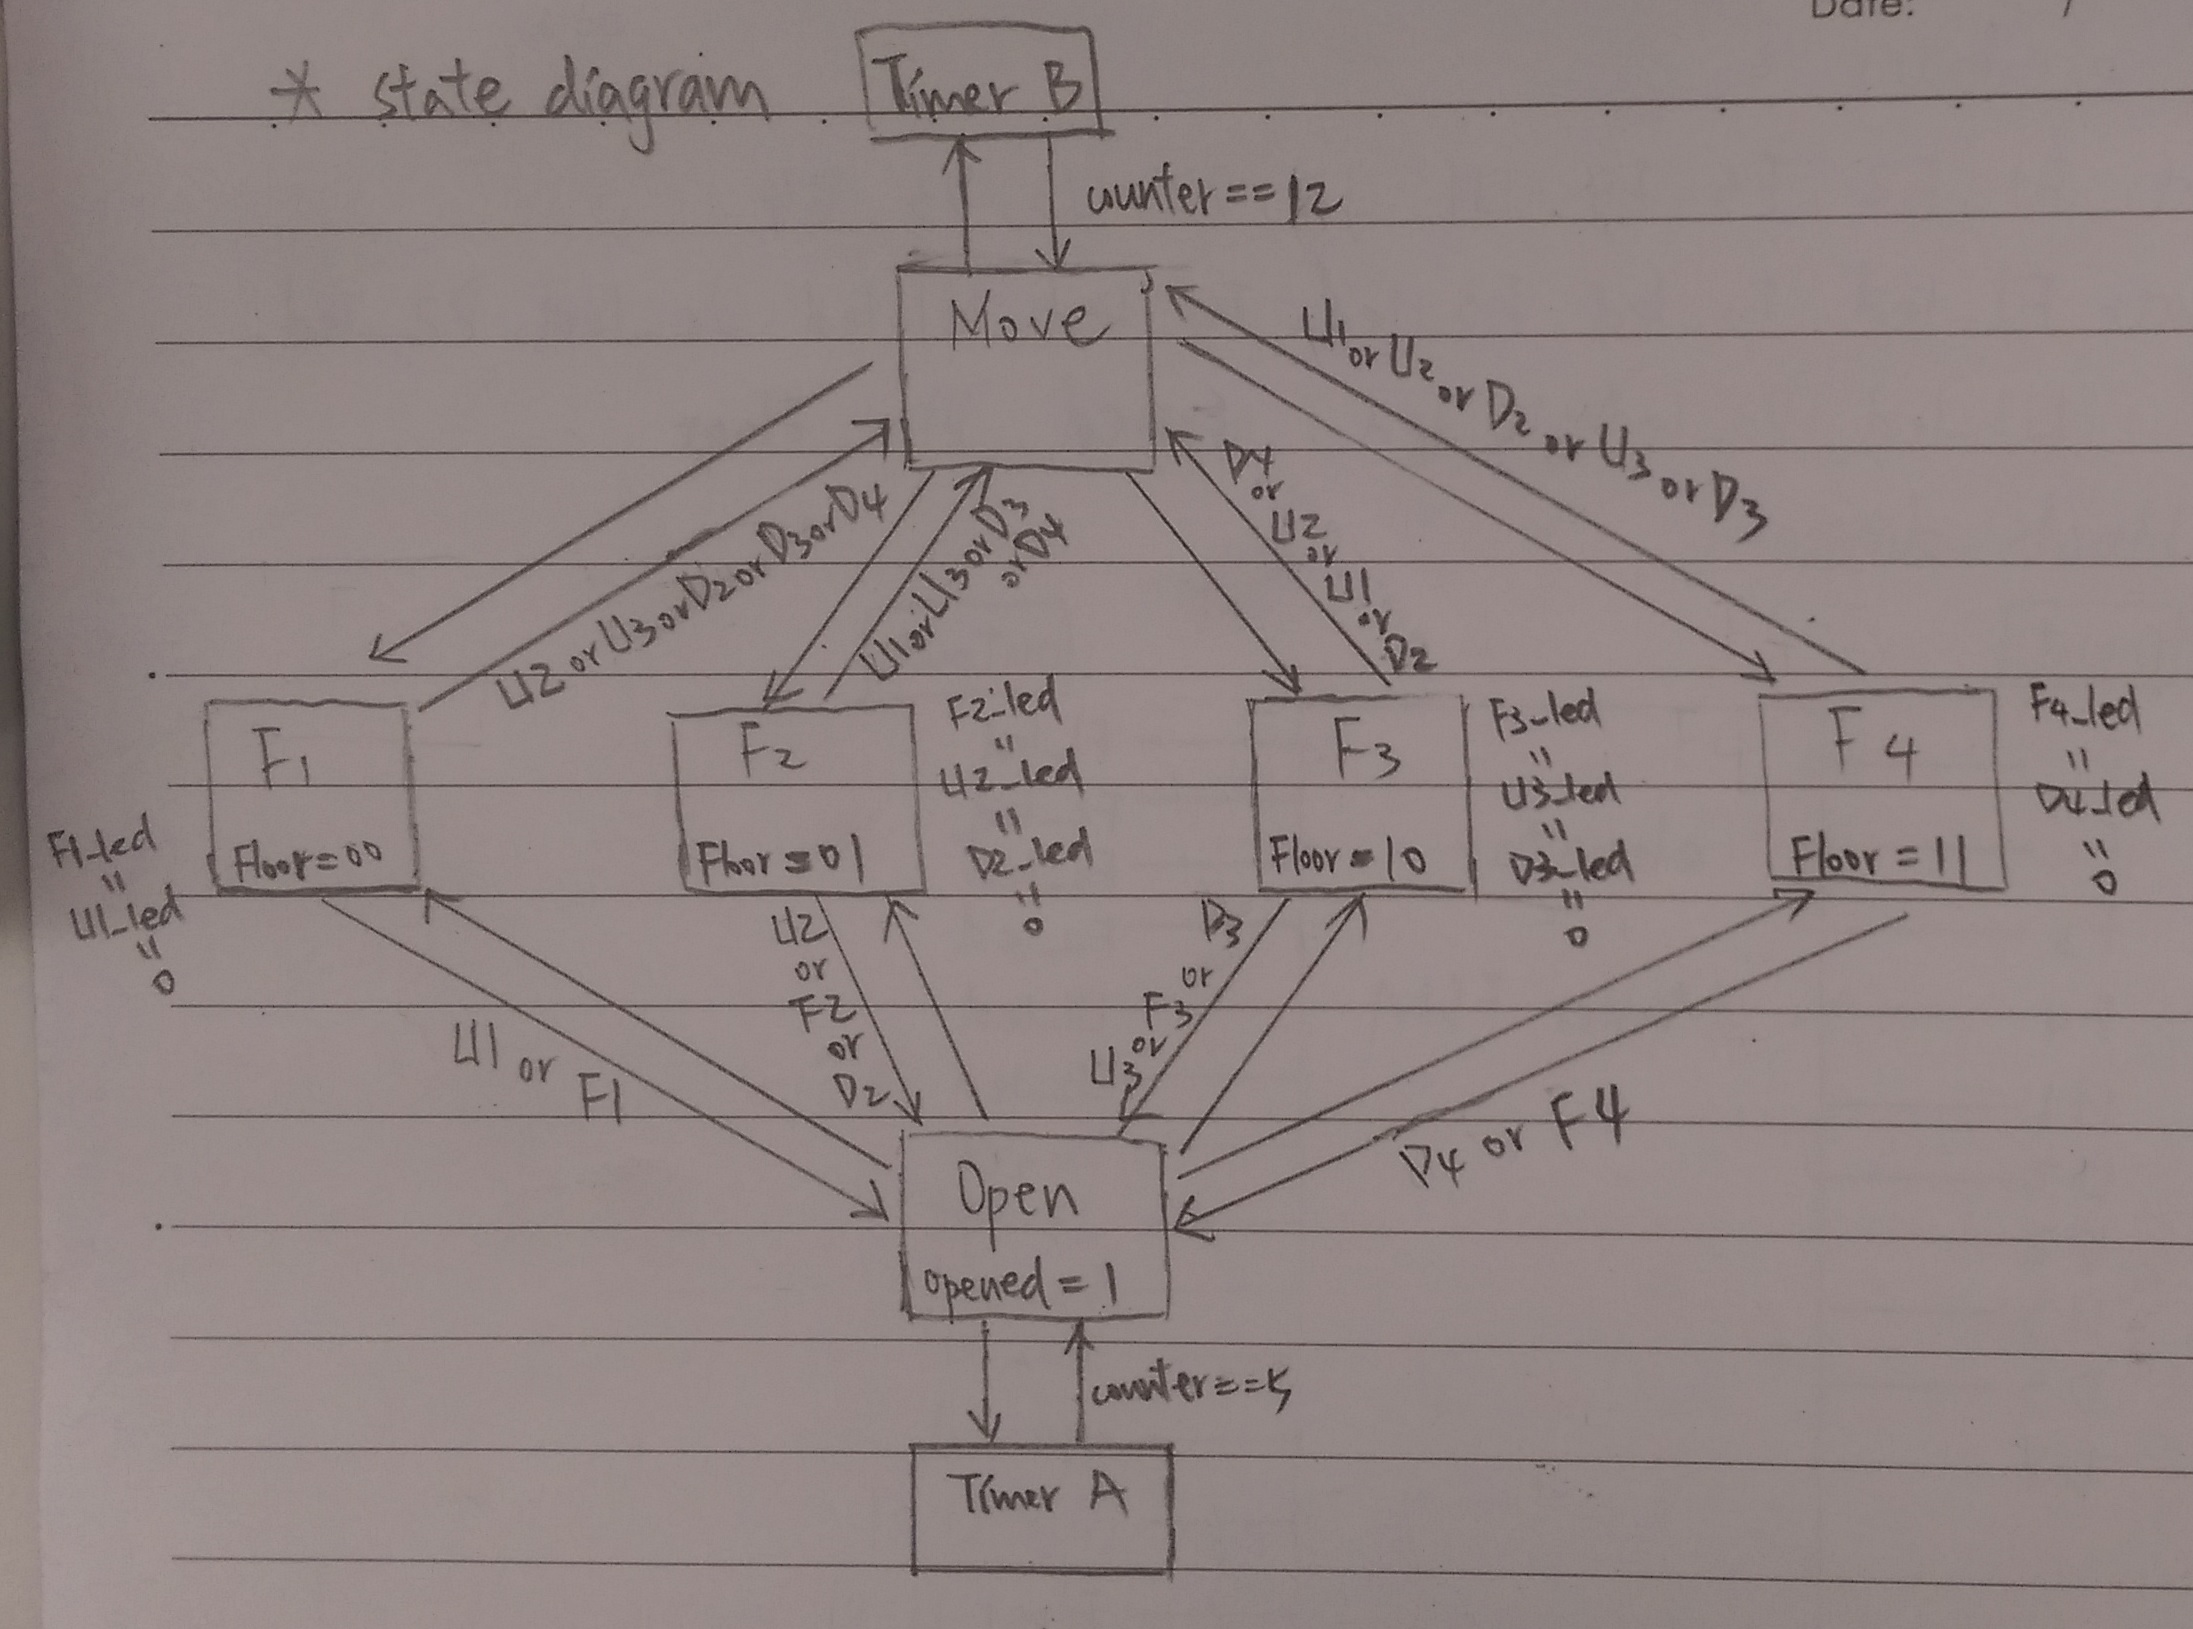 Date: /
* state diagram
Timer B
counter==12
Move
U1 or U2 or D2 or U3 or D3
D4
or
U2
or
U1
or
D2
U2 or U3 or D2 or D3 or D4
U1 or U3 or D3
or D4
F1
Floor=00
F1_led
"
U1_led
"
0
F2
Floor=01
F2_led
"
U2_led
"
D2_led
"
0
F3
Floor=10
F3_led
"
U3_led
"
D3_led
"
0
F4
Floor=11
F4_led
"
D4_led
"
0
U1 or F1
U2
or
F2
or
D2
D3
or
F3
or
U3
D4 or F4
Open
opened=1
counter==5
Timer A